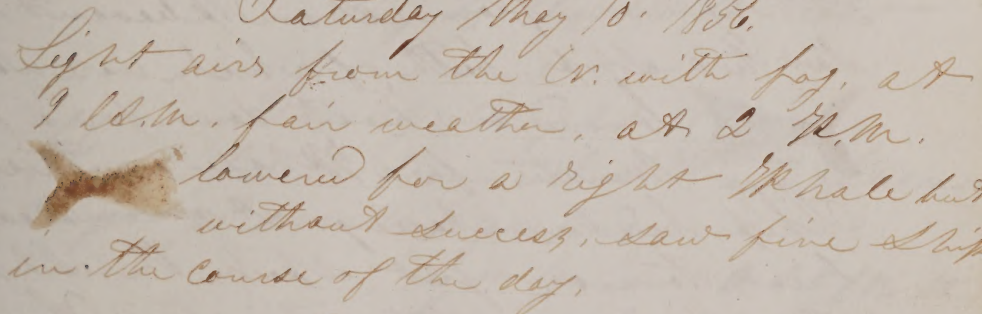 Saturday May 10. 1856.
Light airs from the W. with fog. at
9 A.M. fair weather. at 2 P.M.
lowered for a right Whale but
without success, saw five Ship
in the course of the day.